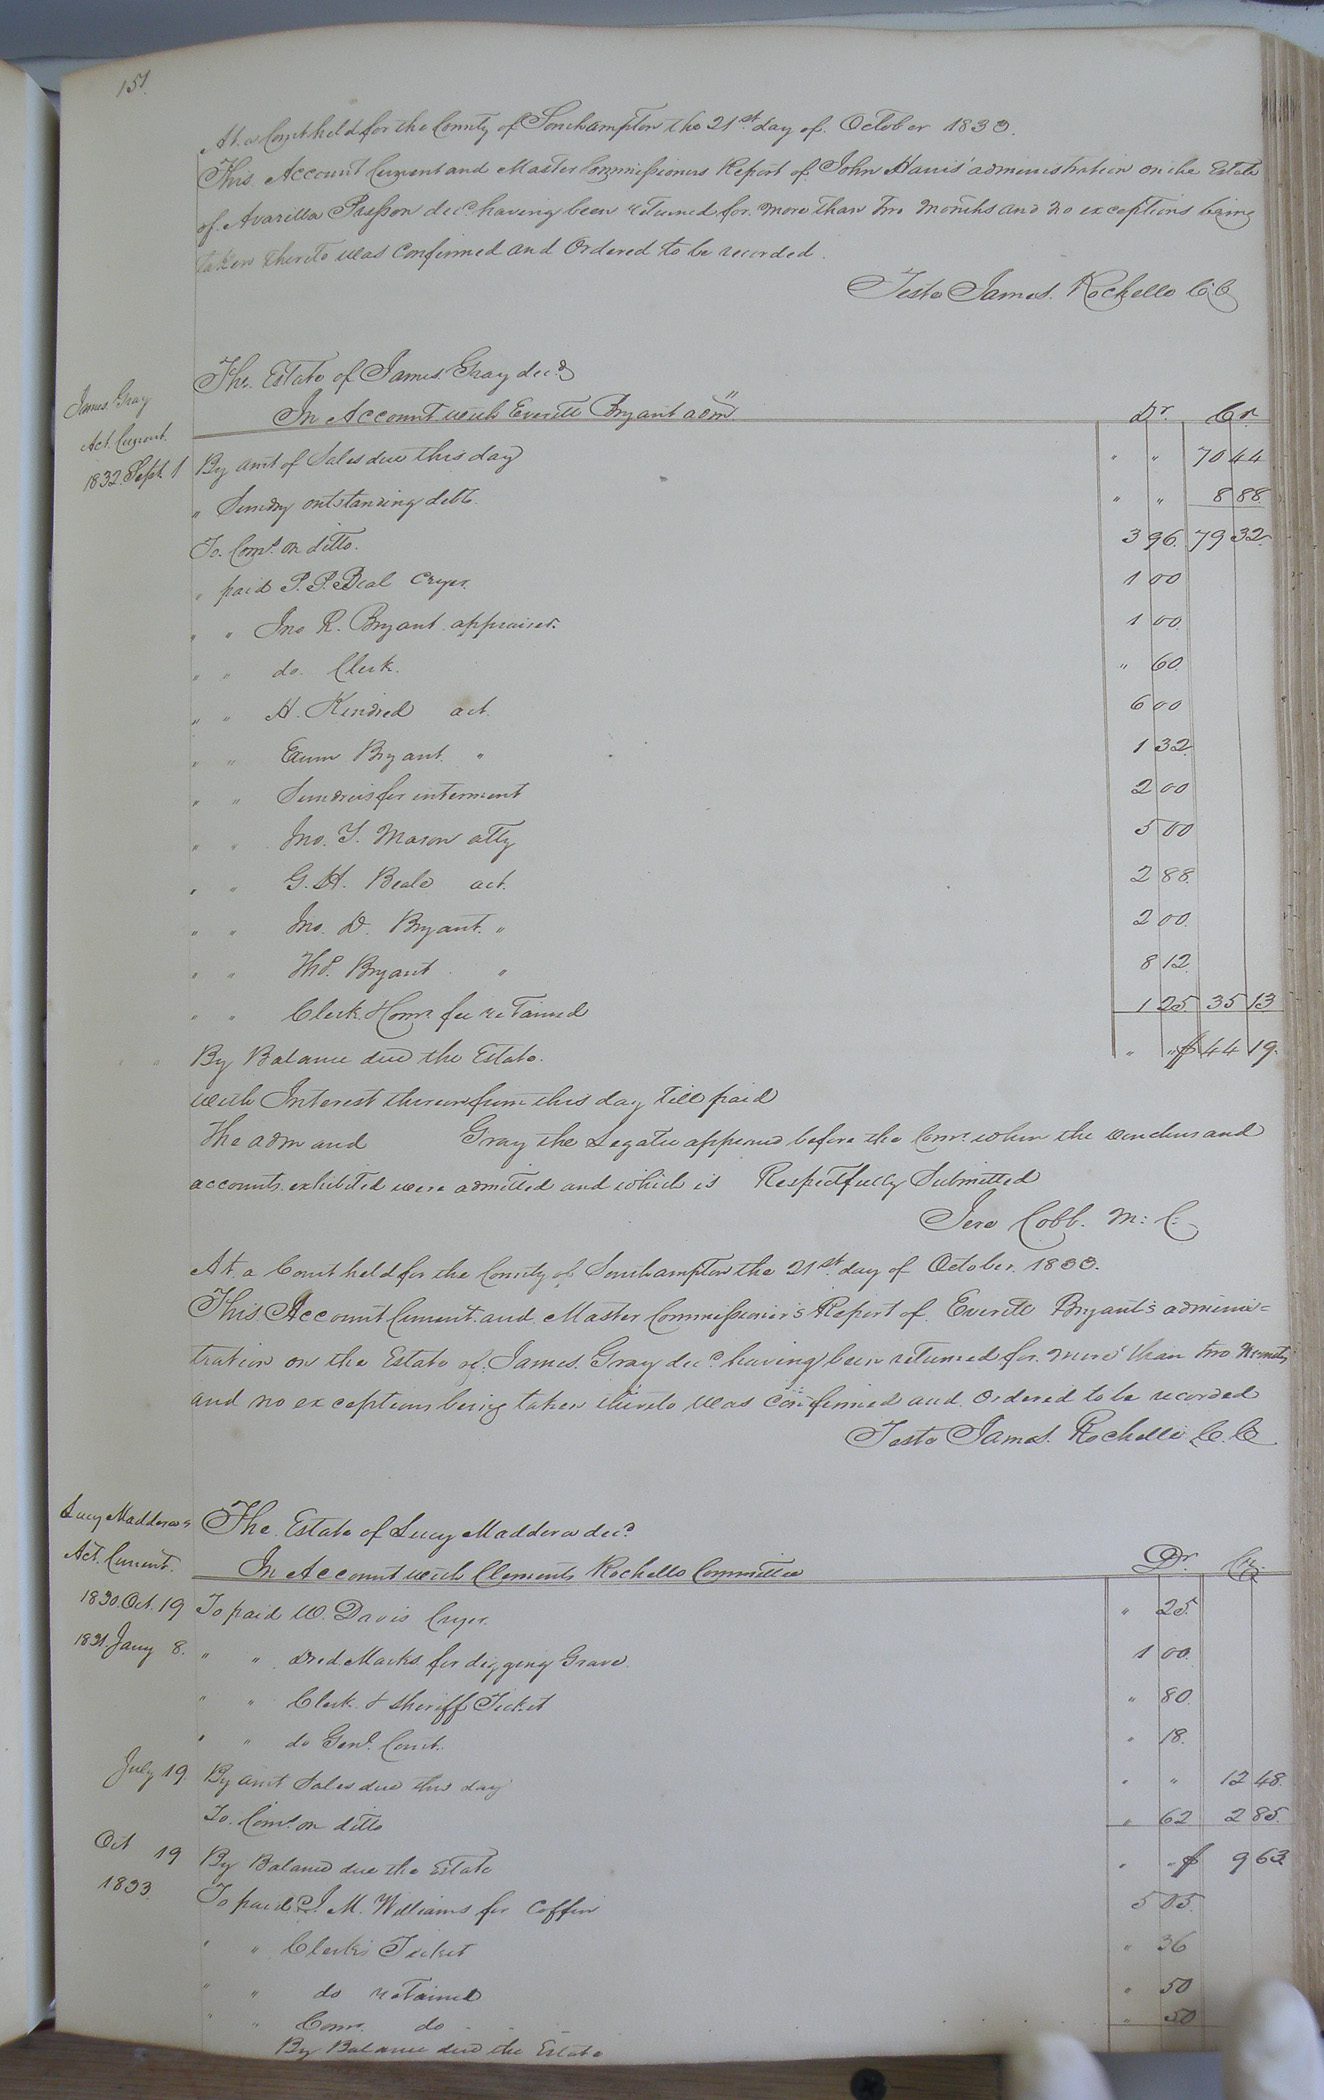 151.
At a Court held for the County of Southampton the 21st day of October 1833.
This Account Current and Master Commissioners Report of John Harris' administration on the Estate
of Avarilla Passon decd having been returned for more than two months and no exceptions being
taken thereto was confirmed and Ordered to be recorded.
Teste James Rochelle C.C
James Gray
Act. Current.
The Estate of James Gray decd
In Account with Everett Bryant adm. Dr. Cr.
1832. Sept. 1 By amt of Sales due this day " " 70 44
" Sundry outstanding debts. " " 8 88
To Coms. on ditto. 3 96. 79 32.
" paid P. P. Beal Cryer. 1 00
" " Jno R. Bryant appraiser. 1 00.
" " do. Clerk. " 60.
" " H. Kindred act. 6 00
" " Exum Bryant. " 1 32
" " Sundries for interment 2 00
" " Jno. Y. Mason atty 5 00
" " G. H. Beale act. 2 88.
" " Jno. D. Bryant. " 2 00.
" " Thos. Bryant " 8 12.
" " Clerk & Comr. fee retained 1 25. 35 13
By Balance due the Estate. " " $ 44 19.
with Interest thereon from this day till paid
The adm and Gray the Legatee appeared before the Comr. when the vouchers and
accounts exhibited were admitted and which is Respectfully Submitted
Jere Cobb. M: C:
At a Court held for the County of Southampton the 21st. day of October. 1833.
This Account Current and Master Commissioner's Report of Everett Bryant's adminis=
tration on the Estate of James Gray decd having been returned for more than two Months
and no exceptions being taken thereto was confirmed and Ordered to be recorded
Teste James Rochelle C.C.
Lucy Maddera's
Act. Current.
The Estate of Lucy Maddera decd
In Account with Clements Rochelle Committee Dr. Cr.
1830. Oct. 19 To paid W. Davis Cryer. " 25.
1831. Jany 8. " " Marks for digging Grave. 1 00.
" " Clerk & Sheriff Ticket " 80.
" " do Genl. Court. " 18.
July 19. By amt Sales due this day " " 12 48.
To. Coms. on ditto " 62 2 85.
Oct 19 By Balance due the Estate " " $ 9 63
1833. To paid J. M. Williams for Coffin 5 05.
" " Clerks Ticket " 36
" " do retained " 50
" " Comr. do " 50
By Balance due the Estate